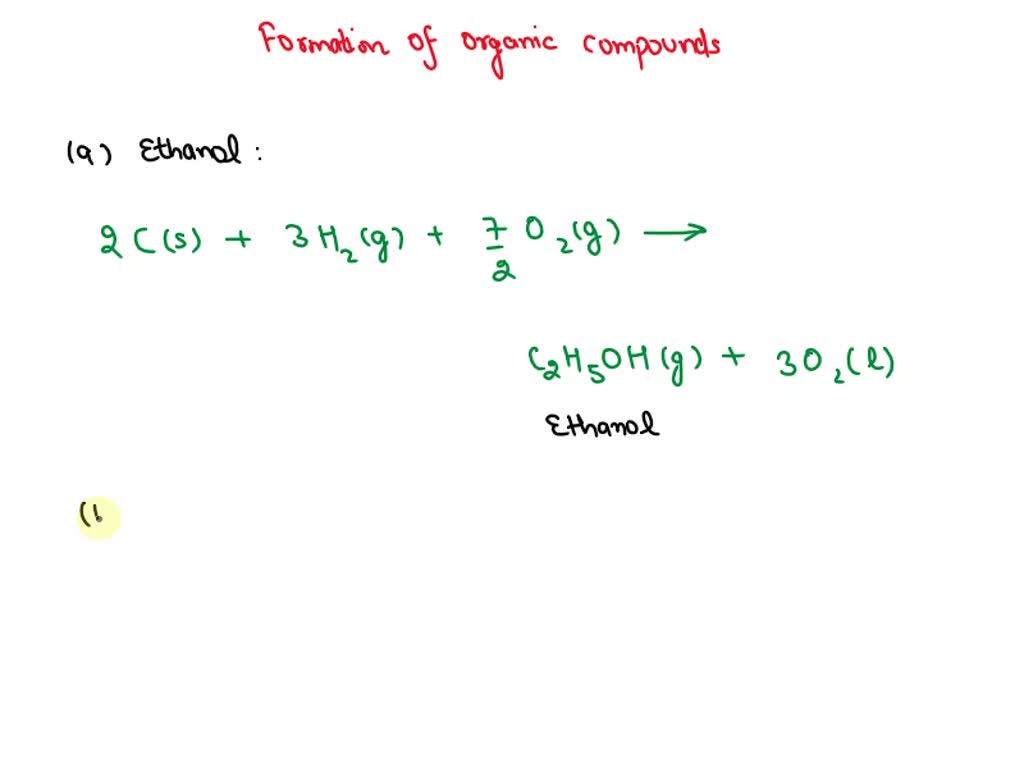 Formation of organic compounds
(a) Ethanol :
2 C(s) + 3 H₂(g) + 7/2 O₂(g) →
C₂H₅OH (g) + 3O₂(l)
Ethanol
(